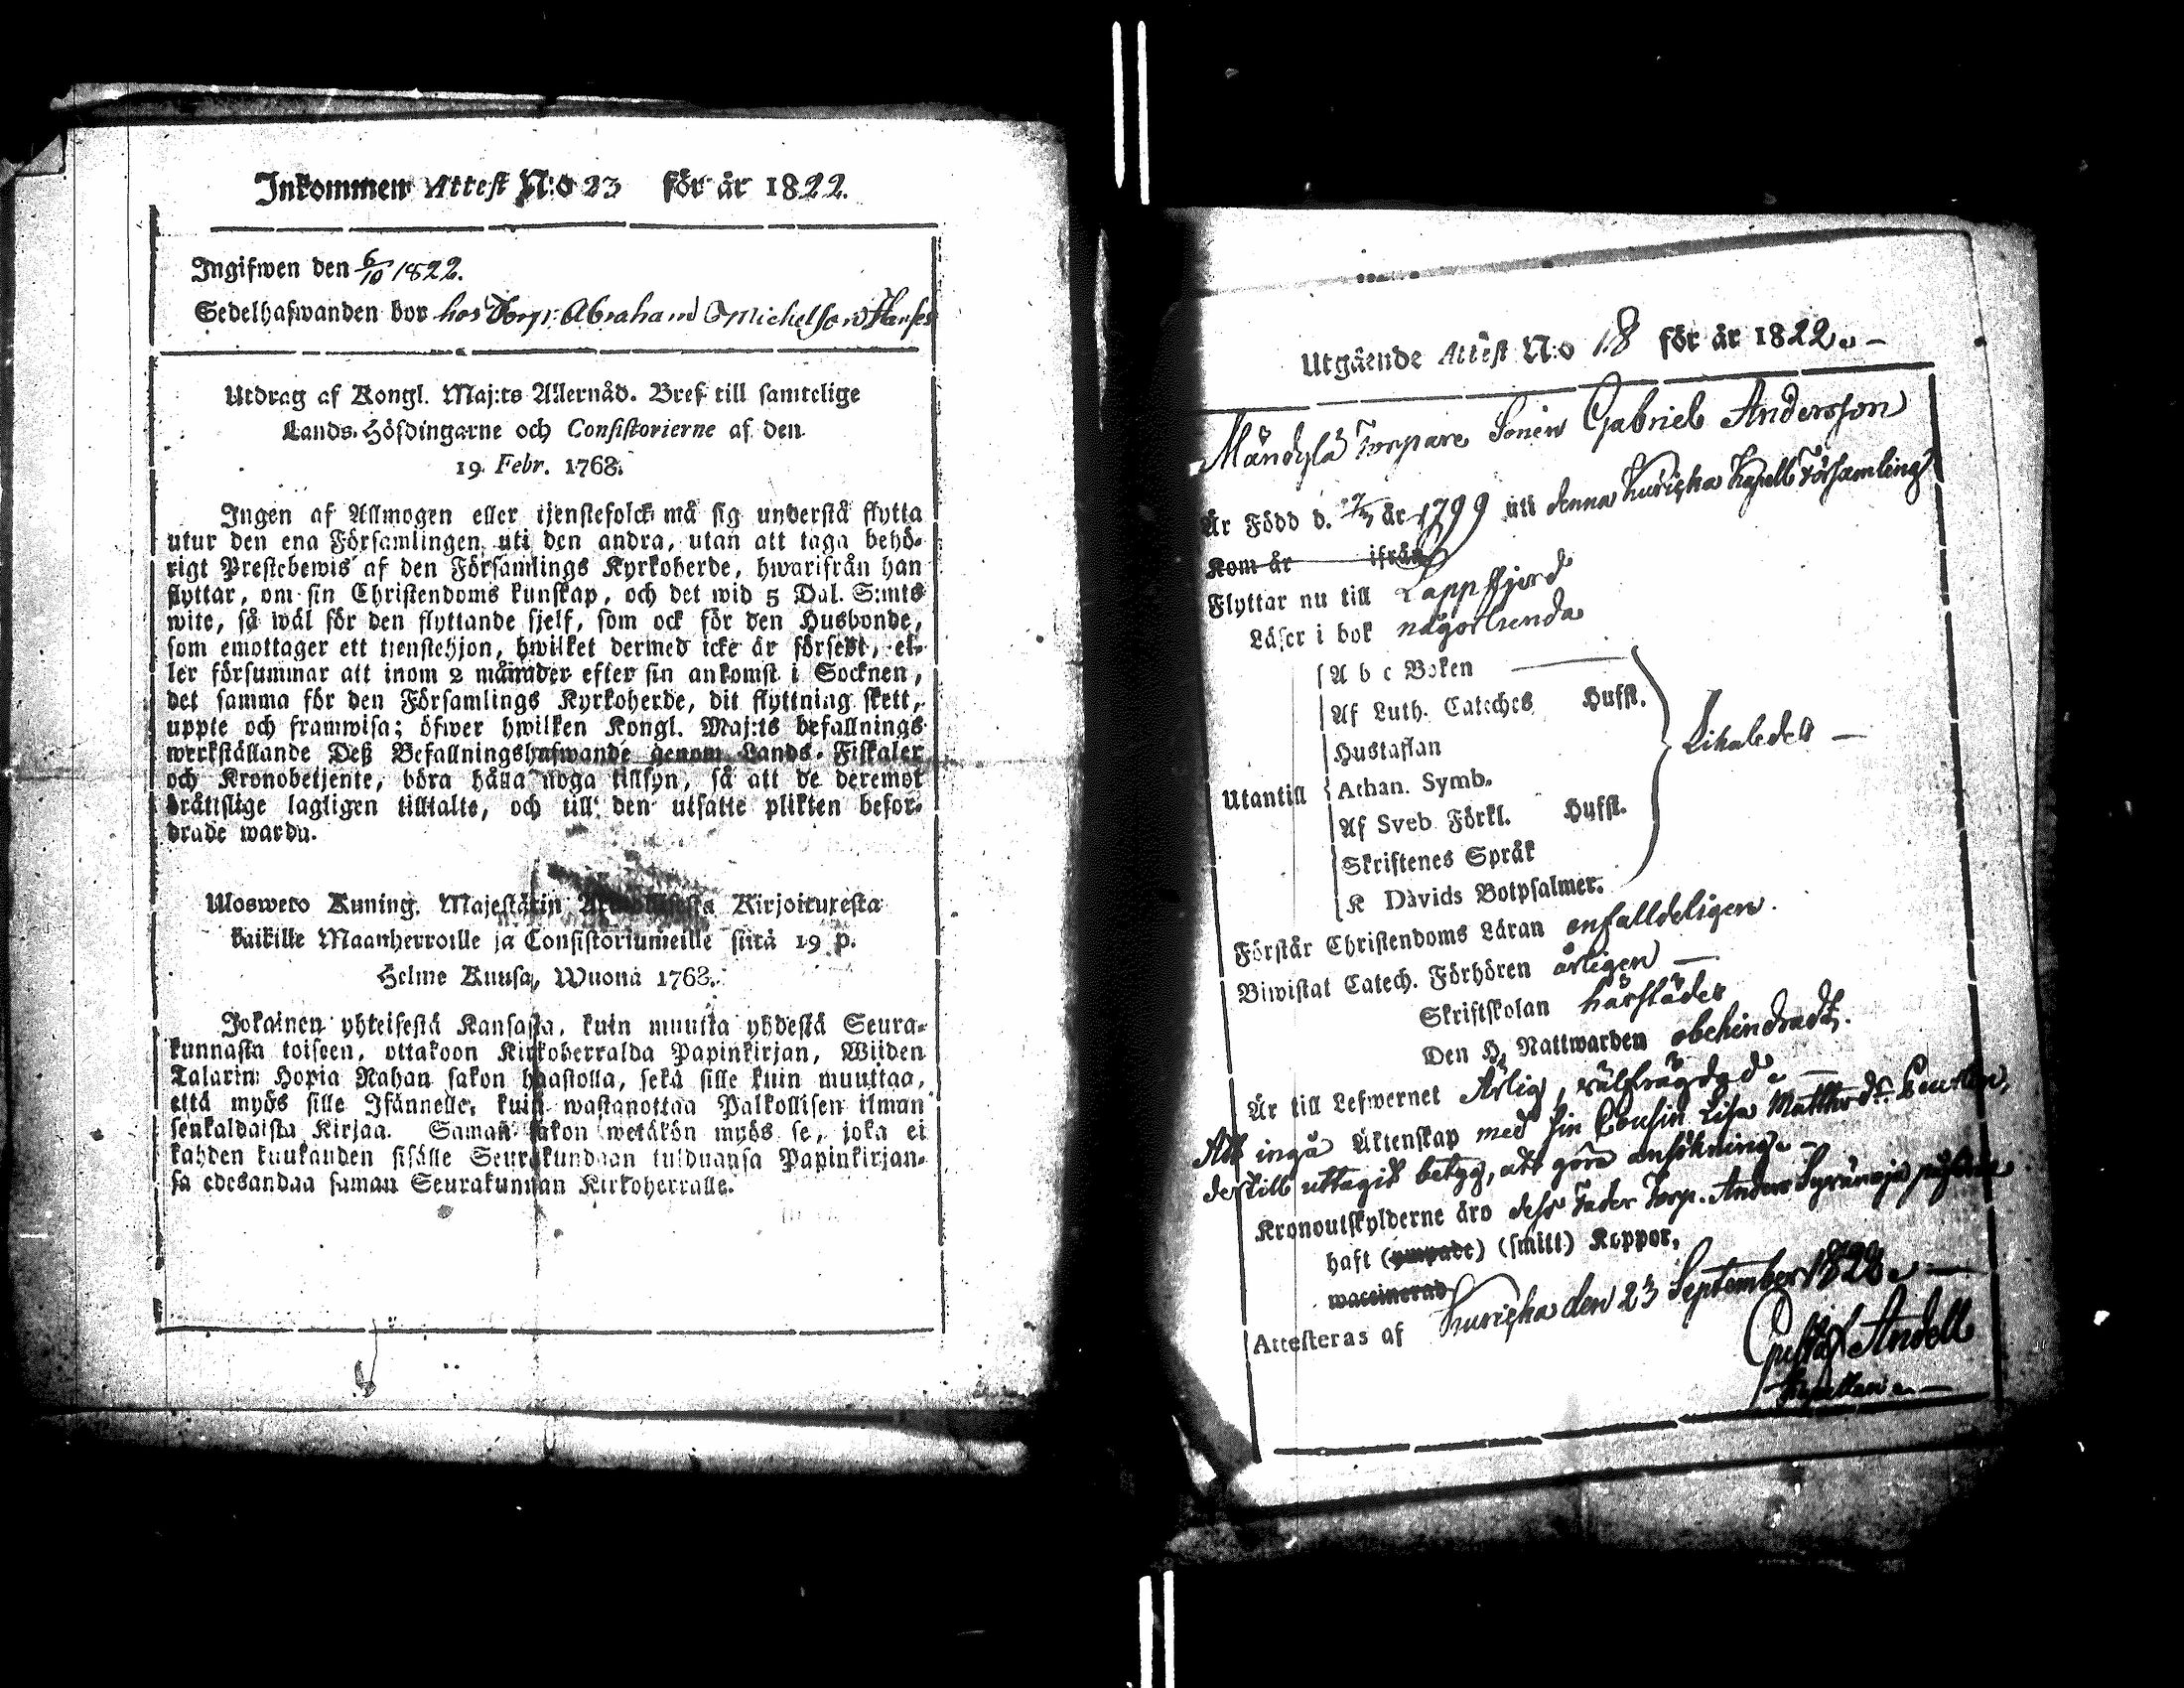 Inkommen Attest N:o 23 för år 1822.
Ingifwen den 6/10 1822.
Sedelhafwanden bor hos Torp: Abraham Michelson
Utdrag af Kongl. Maj:ts Allernåd. Bref till samtelige
Lands-Höfdingarne och Consistorierne af den
19 Febr. 1768.
Ingen af Allmogen eller tjenstefolck må sig understå flytta
utur den ena Församlingen uti den andra, utan att taga behö-
rigt Prestebewis af den Församlings Kyrkoherde, hwarifrån han
flyttar, om sin Christendoms kunskap, och det wid 5 Dal. S:mts
wite, så wäl för den flyttande sjelf, som ock för den Husbonde,
som emottager ett tienstehjon, hwilket dermed icke är försedt, el-
ler försummar att inom 2 månader efter sin ankomst i Socknen,
det samma för den Församlings Kyrkoherde, dit flyttning skett,
uppte och framwisa; öfwer hwilken Kongl. Maj:ts befallnings
werkställande Deß Befallningshafwande genom Lands-Fiskaler
och Kronobetjente, böra hålla noga tillsyn, så att de deremot
brättslige lagligen tilltalte, och till den utsatte plikten befor-
drade warda.
Uloswero Kuning. Majestätin Kirjoituxesta
kaikille Maanherroille ja Consistoriumeille siitä 19 p.
Helme Kuusa, Wuonä 1768.
Jokainen yhteisestä Kansasta, kuin muutta yhdestä Seura-
kunnasta toiseen, ottakoon Kirkoherralda Papinkirjan, Wiiden
Talarin Hopia Rahan sakon haastolla, sekä sille kuin muuttaa,
että myös sille Isännelle, kuin wastanottaa Palkollisen ilman
senkaldaista Kirjaa. Saman sakon wetäkön myös se, joka ei
kahden kuukauden sisälle Seurakundaan tulduansa Papinkirjan-
sa edesandaa saman Seurakunnan Kirkoherralle.
Utgående Attest N:o 18 för år 1822. –
Mändylä Torpare Sonen Gabriel Andersson
Är Född d. år 1799 uti denna Kuricka Kapell Församling
Kom år ifrån
Flyttar nu till Lappfjerd
Läser i bok någorlunda
A b c Boken
Af Luth. Cateches Hufst.
Hustaflan
Athan. Symb.
Utantill
Likaledes –
Af Sveb. Förkl. Hufst.
Skriftenes Språk
K Davids Botpsalmer.
Förstår Christendoms Läran enfalldeligen.
Biwistat Catech. Förhören årligen –
Skriftskolan härstädes
Den H. Nattwarden obehindradt.
Är till Lefwernet Ärlig, välfrägdad. –
Att ingå Äktenskap med sin Cousin Lisa Matthsd:r
dertill uttagit betyg, att göra ansökning. –
Kronoutskylderne äro dess Fader Torp. Anders
haft (ympade) (smitt) Koppor,
waccinerad
Attesteras af Kuricka den 23 September 1822. –
Gustaf Andell